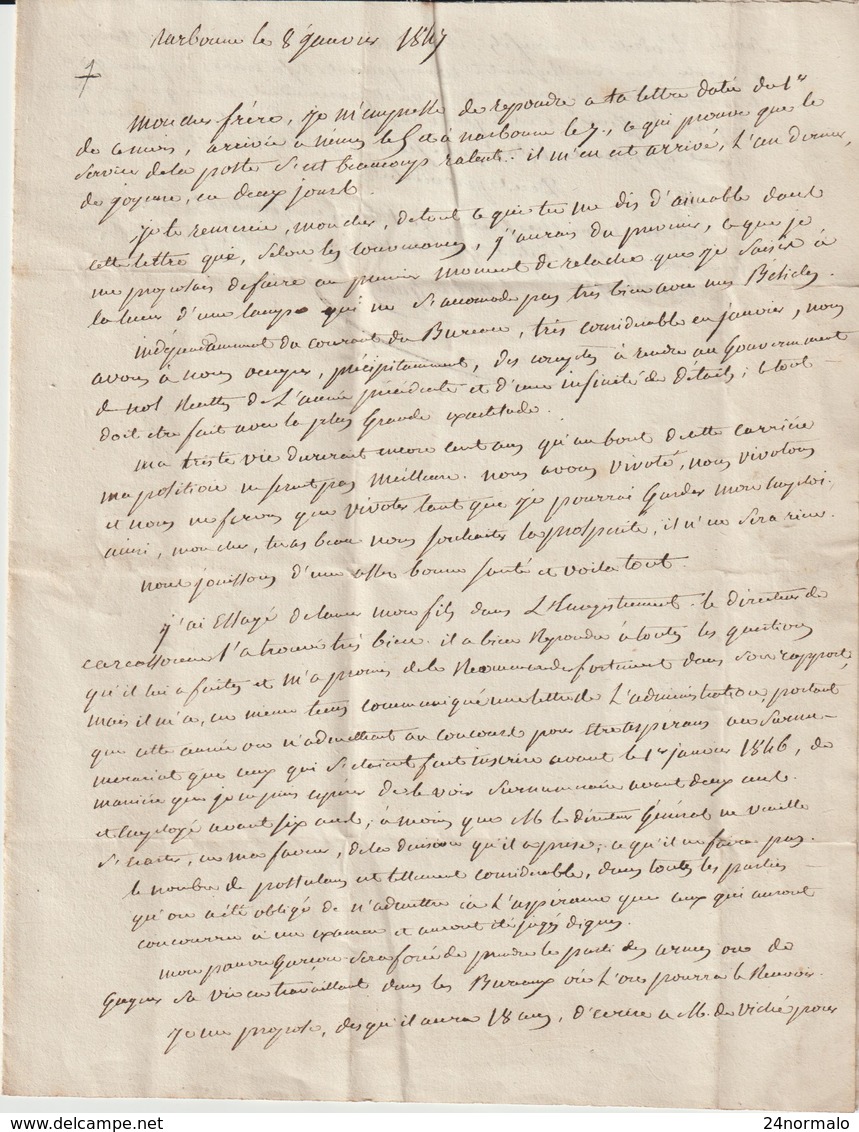 Narbonne le 8 janvier 1847
Mon cher frère, je m'empresse de repondre a ta lettre datée du 1er
de ce mois, arrivée a Nimes le 5 et à narbonne le 7, ce qui prouve que le
service de la poste s'est beaucoup ralenti. il m'en est arrivé, L'an dernier,
de en deux jours.
je te remercie, mon cher, de tout ce que tu me dis d'aimable dans
cette lettre que, selon les convenances, j'aurais du prévenir, ce que je
me proposais de faire au premier moment de relache que je saisis à
la lueur d'une lampe qui ne s'accomode pas très bien avec mes Bésicles.
indépendamment du courant du Bureau, très considérable en janvier, nous
avons à nous occuper, précipitamment, des comptes à rendre au Gouvernement
de nos Recettes de L'année précédente et d'une infinité de détails; le tout
doit etre fait avec la plus Grande exactitude.
ma triste vie durerait encore cent ans qu'au bout de cette carrière
ma position ne serait pas meilleure. nous avons vivoté, nous vivotons
et nous ne ferons que vivoter tant que je pourrai Garder mon Emploi.
ainsi, mon cher, tu as beau nous souhaiter la prosperité, il n'en sera rien.
nous jouissons d'une assez bonne santé et voila tout.
j'ai Essayé de lancer mon fils dans L'Enregistrement. le directeur de
carcassonne l'a trouvé très bien. il a bien Repondu à toutes les questions
qu'il lui a faites et m'a promis de le Recommander fortement dans son rapport,
mais il m'a, en meme tems communiqué une lettre de L'administration, portant
que cette année on n'admettrait au concours pour Etre aspirans au Surnu-
merariat que ceux qui s'etaient fait inscrire avant le 1er janvier 1846, de
manière que je ne puis espérer de le voir Surnumeraire avant deux ans
et Employé avant six ans, à moins que M. le directeur Général ne veuille
s'écarter, en ma faveur, de la decision qu'il a prise, ce qu'il ne fera pas.
le nombre de postulans est tellement considérable, dans toutes les parties
qu'on a été obligé de n'admettre à L'espérance que ceux qui auront
concourru à un examen et auront été jugés dignes.
mon pauvre Garçon sera forcé de prendre le parti des armes ou de
Gagner sa vie en travaillant dans les Bureaux où L'on pourra le Recevoir.
je me propose, des qu'il aura 18 ans, d'ecrire a M. de pour
24normalo